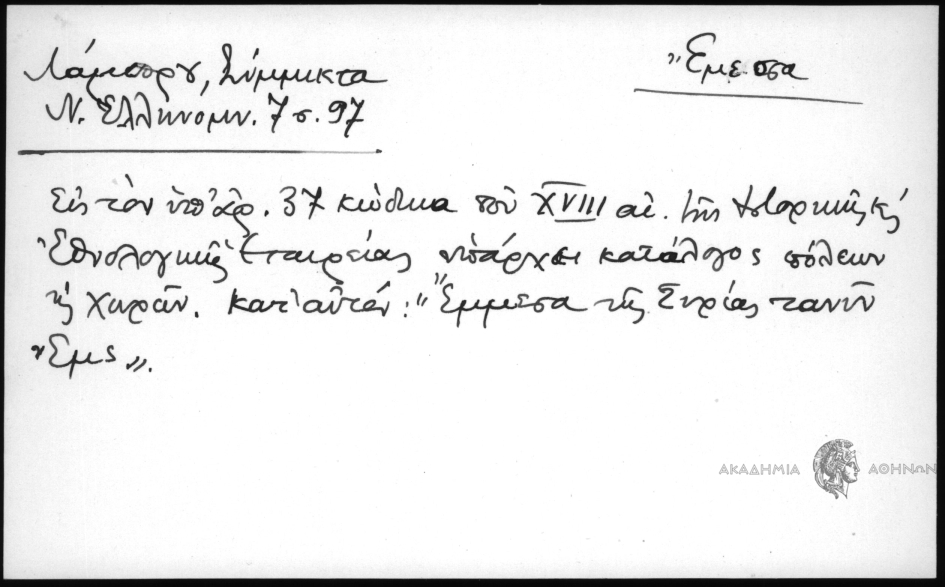 Λάμπρου, Σύμμικτα
Ν. Ἑλληνομν. 7 σ. 97
Ἔμεσα
Εἰς τὸν ὑπ' ἀρ. 37 κώδικα τοῦ XVIII αἰ. τῆς Ἱστορικῆς κ'
Ἐθνολογικῆς Ἑταιρείας ὑπάρχει κατάλογος πόλεων
ἢ χωρῶν. Κατ' αὐτόν: "Ἔμμεσα τῆς Συρίας τανῦν
Ἔμς".
ΑΚΑΔΗΜΙΑ ΑΘΗΝΩΝ